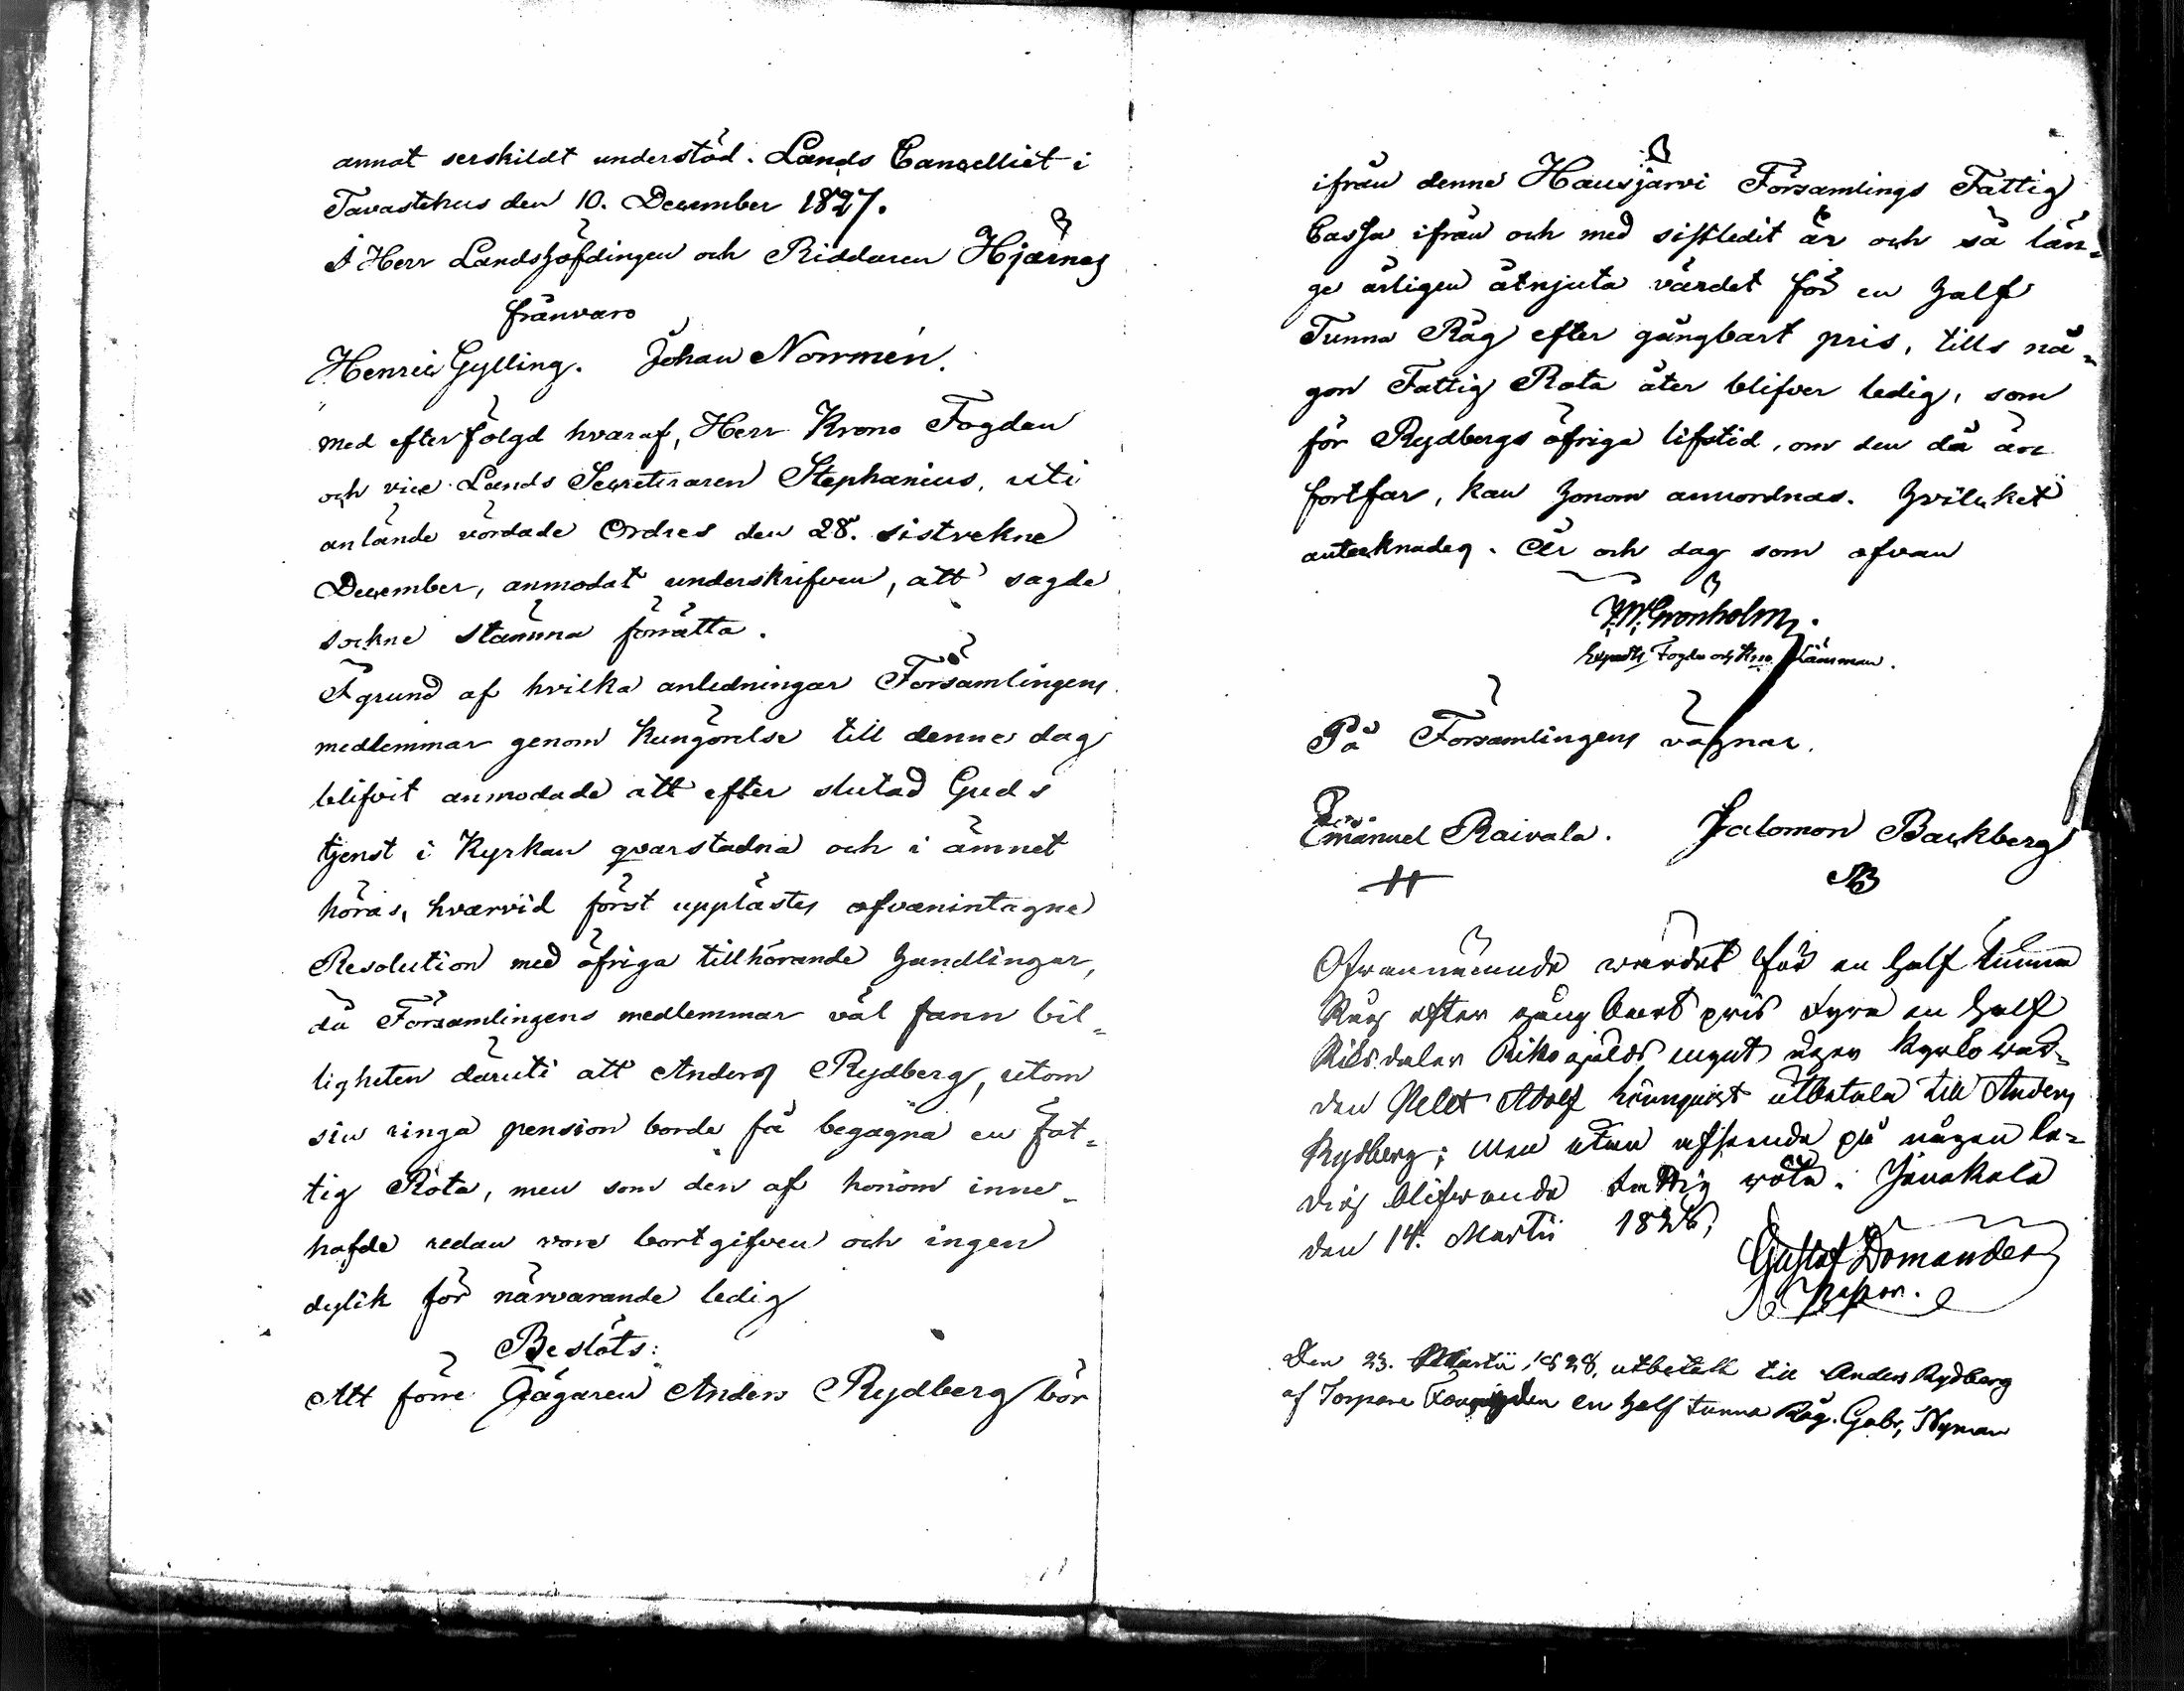 annat serskildt understöd. Lands Cancelliet i
Tavastehus den 10. December 1827.
I Herr Landshöfdingen och Riddaren Hjärnes
frånvaro
Henric Gylling. Johan Norrmén.
med efterfölgd hvaraf, Herr Krono Fogden
och vice Lands Secreteraren Stephanius, uti
anlände vördade Ordres den 28. sistvekne
December, anmodat underskrifven, att sagde
sockne stämma förrätta.
I grund af hvilka anledningar Församlingens
medlemmar genom kungörelse till denne dag
blifvit anmodade att efter slutad Guds
tjenst i Kyrkan qvarstadna och i ämnet
höras, hvarvid först upplästes ofvanintagne
Resolution med öfriga tillhörande handlingar,
då Församlingens medlemmar väl fann bil-
ligheten däruti att Anders Rydberg, utom
sin ringa pension borde få begagna en fat-
tig Rota, men som den af honom inne-
hafde redan vore bortgifven och ingen
dylik för närvarande ledig
Beslöts:
Att förre Jägaren Anders Rydberg bör
ifrån denne Hausjärvi Församlings Fattig
Cassa ifrån och med sistledit år och så län-
ge årligen åtnjuta värdet för en half
Tunna Råg efter gångbart pris, tills nå-
gon Fattig Rota åter blifver ledig, som
för Rydbergs öfriga lifstid, om den då än
fortfar, kan honom anordnas. Hvilket
antecknades. År och dag som ofvan
Grönholm.
Fogde och Krono Länsman.
På Församlingens vägnar.
Emanuel Raivala. Salomon Backberg
SB
Ofwannämnde wärdet för en half tunna
Råg efter gångbart pris Fyra en half
Riksdaler Riksgälds mynt äger Kyrkowär-
den Adolf Lönnquist utbetala till Anders
Rydberg; men utan afseende på någon le-
dig blifwande fattig rota. Janakala
den 14. Martii 1828,
Gustaf Domander
Pastor.
Den 23. Martii 1828, utbetalt till Anders Rydberg
af Torpare en half tunna Råg. Gabr, Nyman